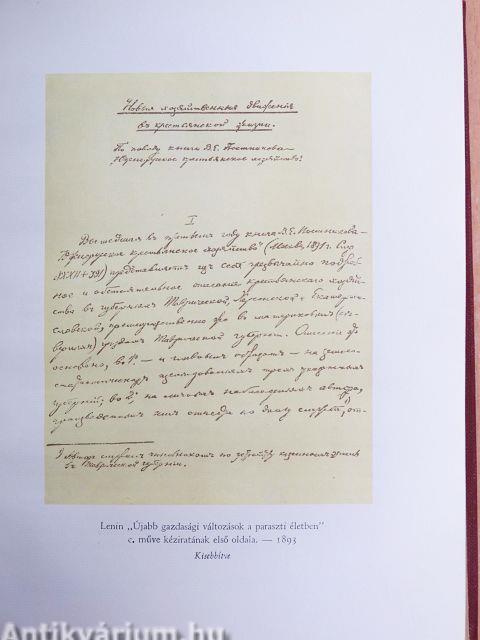 Новыя хозяйственныя движенія
въ крестьянской жизни.
По поводу книги В.Е. Постникова –
Южнорусское крестьянское хозяйство"
I
Вышедшая въ году книга В.Е. Постникова
"Южнорусское крестьянское хозяйство" (Москва, 1891 г. Стр
XXXII + 391) представляетъ изъ себя чрезвычайно подроб-
ное и обстоятельное описаніе крестьянскаго хозяй-
ства въ губерніяхъ Таврической, Херсонской и Екатерино-
славской, преимущественно же въ материковыхъ (сѣ-
верныхъ) уѣздахъ Таврической губерніи. Описаніе это
основано, во 1х, – и главнымъ образомъ – на земско-
статистическихъ изслѣдованіяхъ трехъ указанныхъ
губерній; во 2х, на личныхъ наблюденіяхъ автора,
произведенныхъ имъ отчасти по долгу службы,¹) от-
¹) Авторъ служилъ чиновникомъ по устройству казенныхъ земель
въ Таврической губерніи.
Lenin „Újabb gazdasági változások a paraszti életben"
c. műve kéziratának első oldala. — 1893
Kisebbítve
Antikvárium.hu